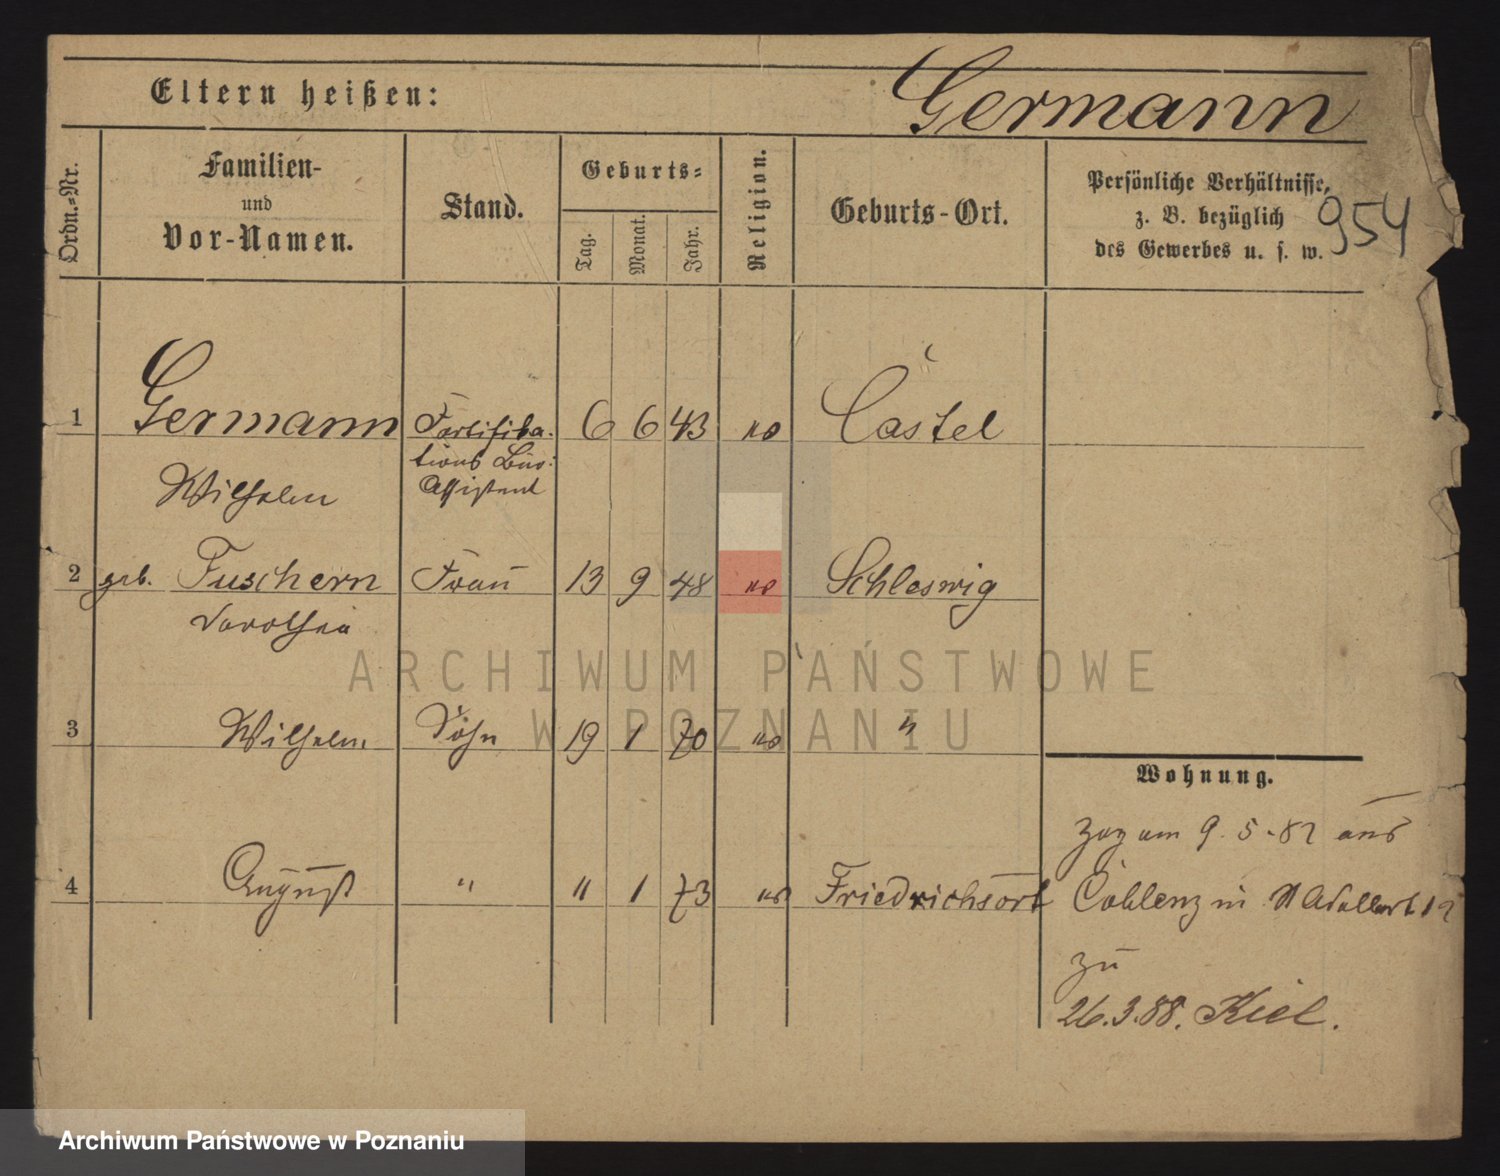 Eltern heißen:
Germann
Ordn.=Nr.
Familien-
und
Vor-Namen.
Stand.
Geburts=
Tag.
Monat.
Jahr.
Religion.
Geburts-Ort.
Persönliche Verhältnisse,
z. B. bezüglich
des Gewerbes u. s. w.
954
1 Germann Fortifika- 6 6 43 Castel
tions Büro
Wilhelm Assistent
2 geb. Tuschern Frau 13 9 48 Schleswig
Dorothea
3 Wilhelm Sohn 19 1 70 "
Wohnung.
zog am 9. 5. 82 aus
4 August " " 1 73 Friedrichsort Coblenz in Adalbert
zu
26.3.88. Kiel.
ARCHIWUM PAŃSTWOWE
W POZNANIU
Archiwum Państwowe w Poznaniu